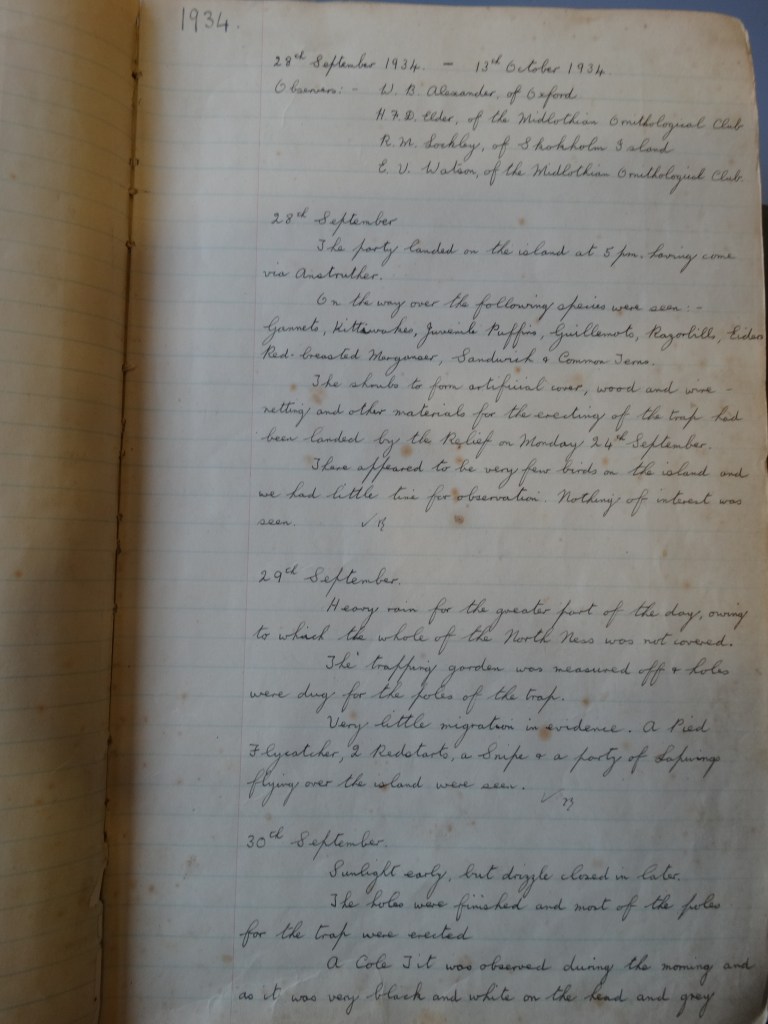 1934.
28th September 1934. - 13th October 1934.
Observers:- W. B. Alexander, of Oxford
H. F. D. Elder, of the Midlothian Ornithological Club
R. M. Lockley, of Skokholm Island
E. V. Watson, of the Midlothian Ornithological Club.
28th September
The party landed on the island at 5 pm. having come
via Anstruther.
On the way over the following species were seen:-
Gannets, Kittiwakes, Juvenile Puffins, Guillemots, Razorbills, Eider
Red-breasted Merganser, Sandwich & Common Terns.
The shrubs to form artificial cover, wood and wire-
netting and other materials for the erecting of the trap had
been landed by the Relief on Monday 24th September.
There appeared to be very few birds on the island and
we had little time for observation. Nothing of interest was
seen.
29th September.
Heavy rain for the greater part of the day, owing
to which the whole of the North Ness was not covered.
The trapping garden was measured off & holes
were dug for the poles of the trap.
Very little migration in evidence. A Pied
Flycatcher, 2 Redstarts, a Snipe & a party of Lapwings
flying over the island were seen.
30th September.
Sunlight early, but drizzle closed in later.
The holes were finished and most of the poles
for the trap were erected
A Cole Tit was observed during the morning and
as it was very black and white on the head and grey